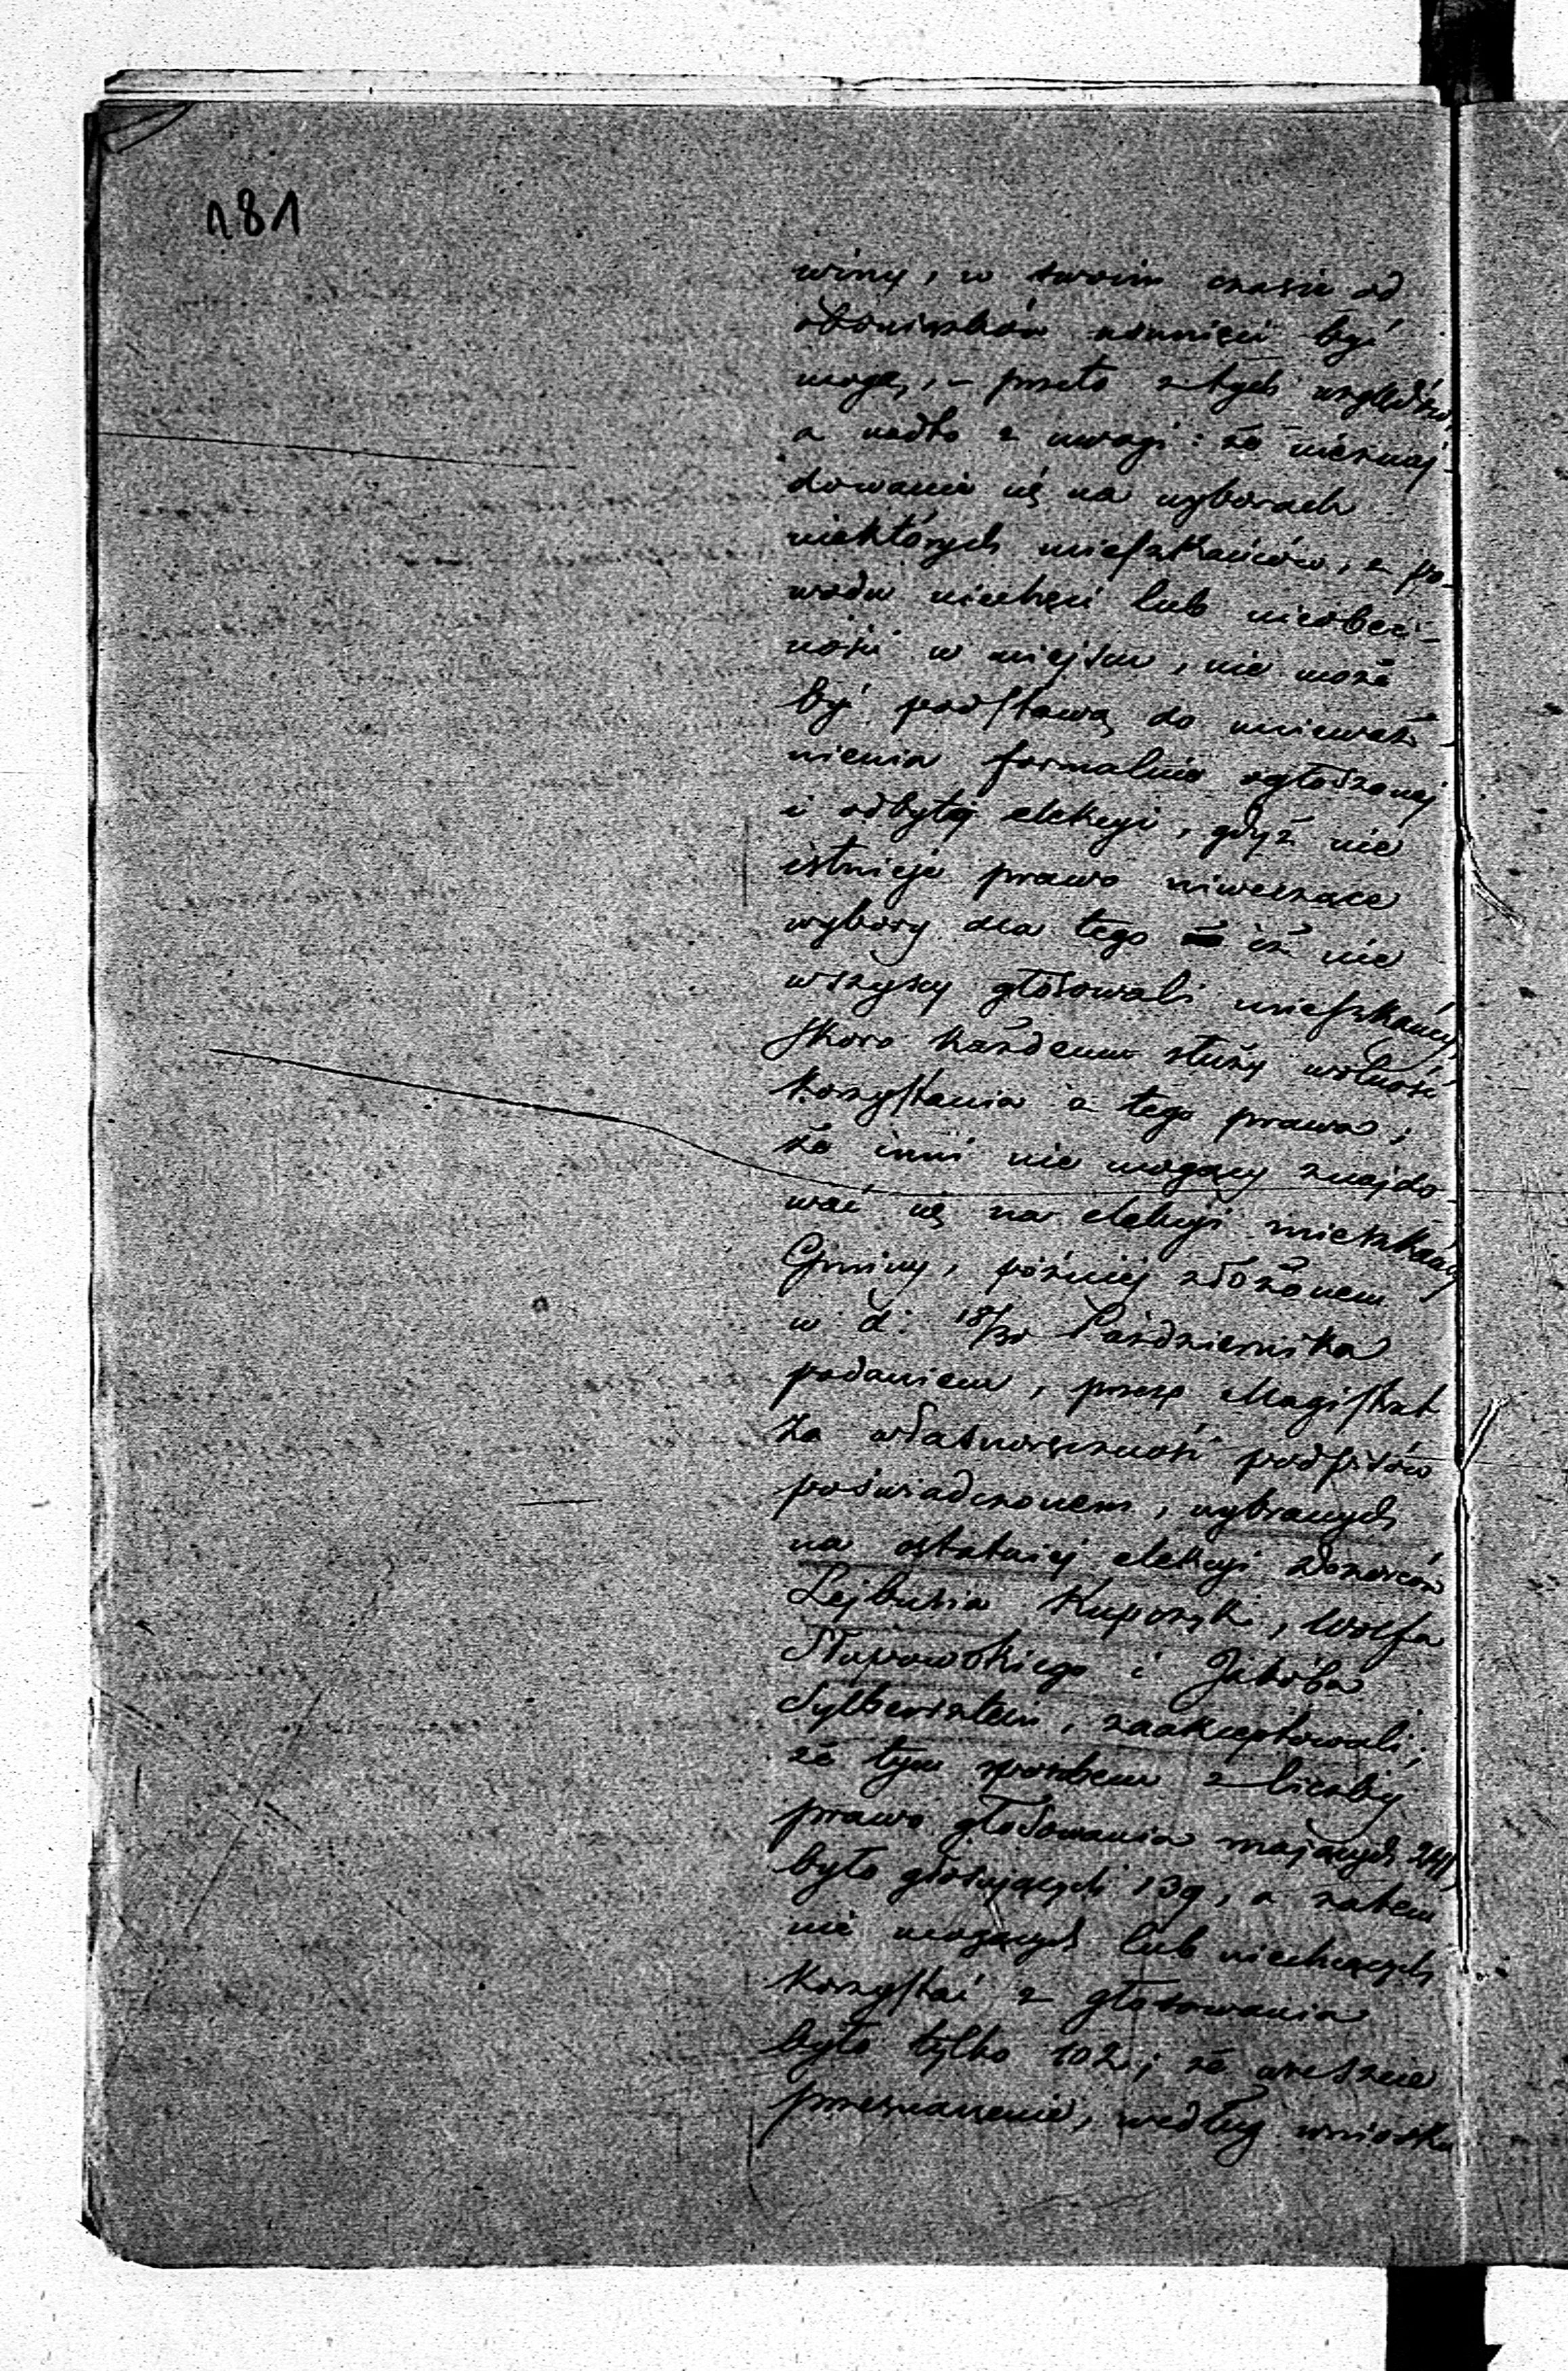 181
winy, w swoim czasie od
obowiązków usunięci być
mogą, - przeto z tych względów,
a nadto z uwagi: że nieznaj-
dowanie się na wyborach
niektórych mieszkańców, z po-
wodu niechęci lub nieobec-
ności w miejscu, nie może
być podstawą do unieważ-
nienia formalnie ogłoszonej
i odbytej elekcyi, gdyż nie
istnieje prawo niweczące
wybory dla tego iż nie
wszyscy głosowali mieszkańcy,
skoro każdemu służy wolność
korzystania z tego prawa;
że inni nie mogący znajdo-
wać się na elekcyi mieszkańcy
Gminy, później złożonem
w d. 18/30 Października
podaniem, przez Magistrat
za własnoręczność podpisów
poświadczonem, wybranych
na ostatniej elekcyi Dozorców
Lejbusia Kupczyk, Wolfa
Słapowskiego i Jakóba
Sylbersztein, zaakceptowali;
że tym sposobem z liczby
prawo głosowania mających 241,
było głosujących 139, a zatem
nie mogących lub niechcących
korzystać z głosowania
było tylko 102; że wreszcie
przeznaczenie, według wniosku